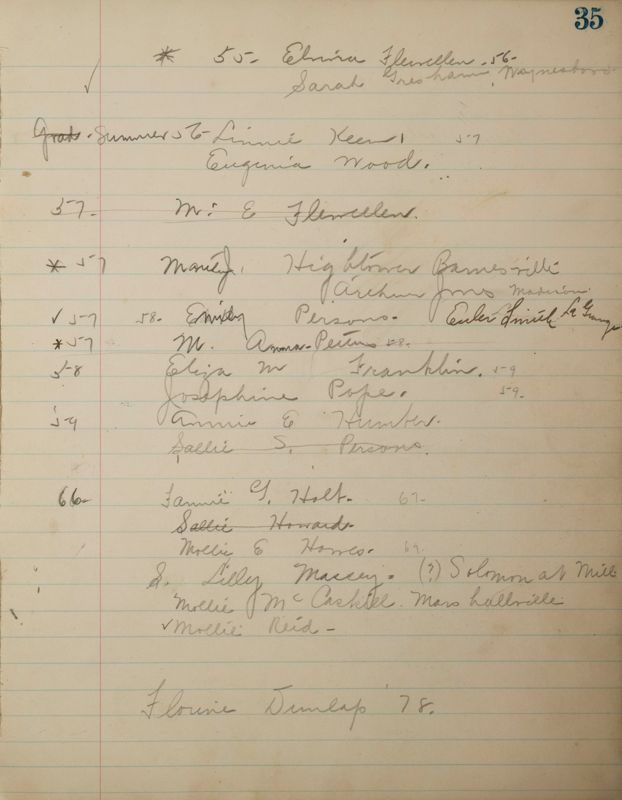 35
* 55- Elmira Flewellen - 56-
✓ Sarah Gresham, Waynesboro
Grads - Summer 56 - Linnie Keen 57
Eugenia Wood.
57- M. E Flewellen.
* 57 Hightower Barnesville
Arthur Jones Madison
✓ 57 58- Emily Persons. Euler Smith La Grange
* 57 M. Anna Peters 58-
58 Eliza M Franklin. 59
Josephine Pope. 59-
59 Annie E Humber.
Sallie S. Persons.
66- Fannie G. Holt. 67-
Sallie Howard.
Mollie E Howes. 69
S. Lilly Massey. (?) Solomon at Mill
Mollie McCaskill. Marshallville
✓ Mollie Reid -
Florine Dunlap '78.